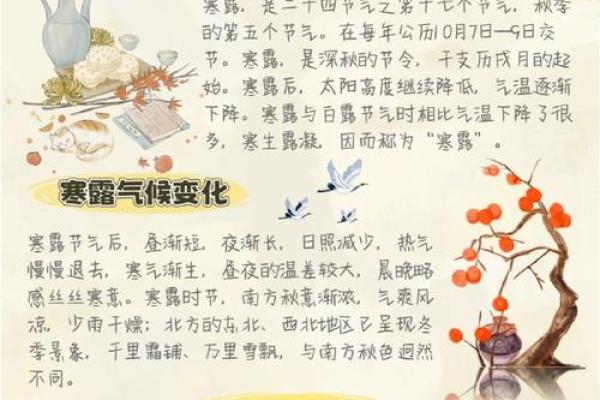 寒露，是二十四节气之第十七个节气，秋季
的第五个节气。在每年公历10月7日—9日交
节。寒露，是深秋的节令，干支历戌月的起
始。寒露后，太阳高度继续降低，气温逐渐
下降。寒露与白露节气时相比气温下降了很
多，寒生露凝，因而称为“寒露”。
寒露气候变化
寒露节气后，昼渐短，夜渐长，日照减少，热气
慢慢退去，寒气渐生，昼夜的温差较大，晨晚略
感丝丝寒意。寒露时节，南方秋意渐浓，气爽风
凉，少雨干燥；北方的东北、西北地区已呈现冬
季景象，千里霜铺、万里雪飘，与南方秋色迥然
不同。